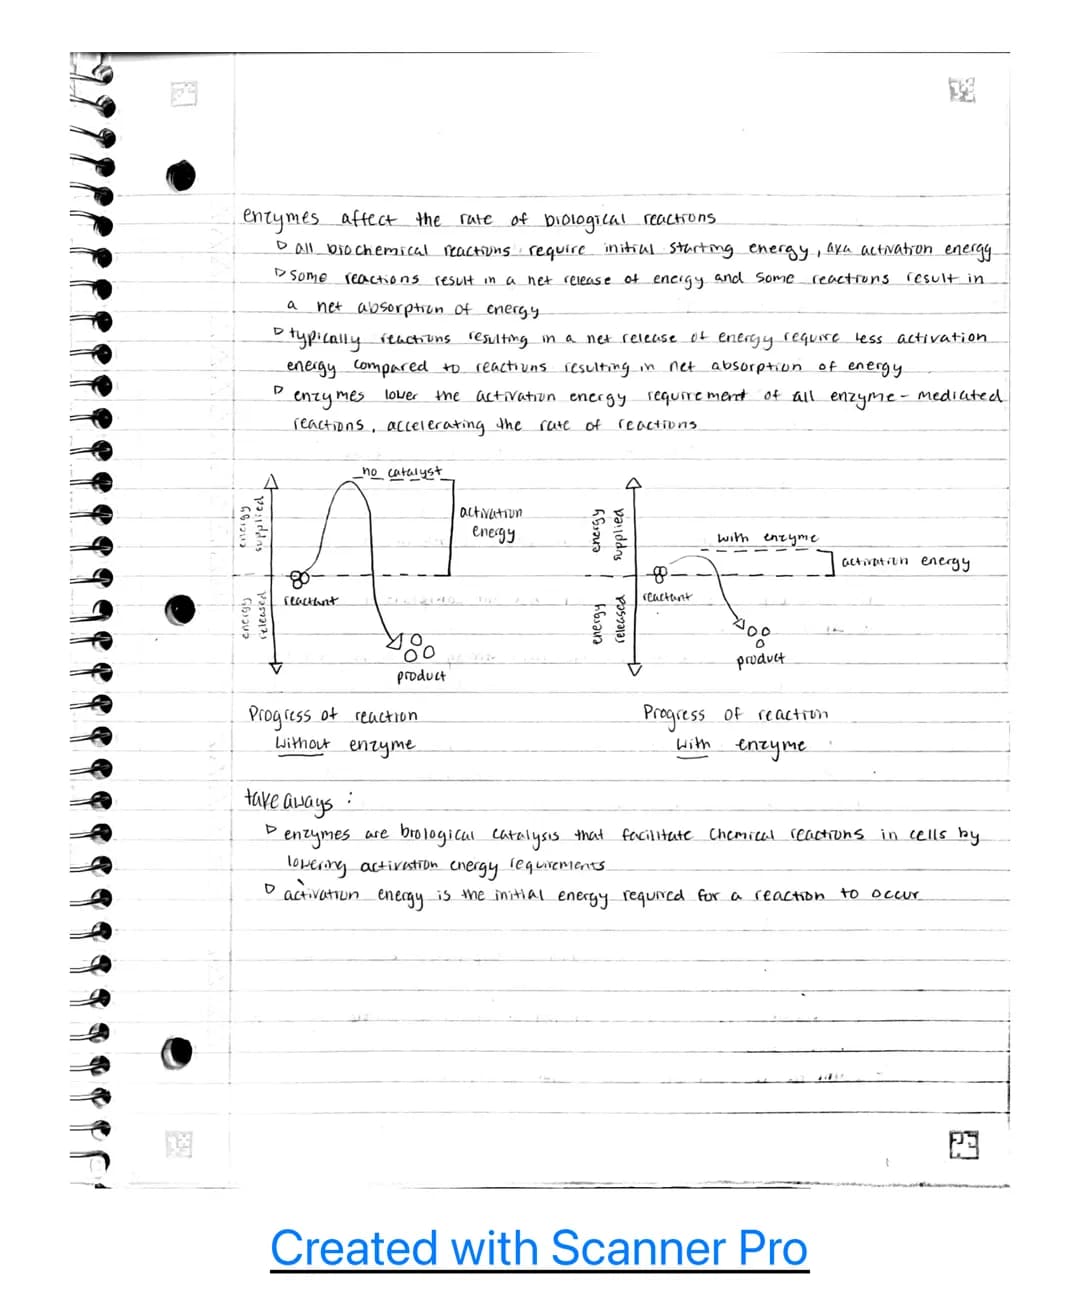 enzymes affect the rate of biological reactions
▷ all biochemical reactions require initial starting energy, aka activation energy
▷ some reactions result in a net release of energy and some reactions result in
a net absorption of energy
▷ typically reactions resulting in a net release of energy require less activation
energy compared to reactions resulting in net absorption of energy
▷ enzymes lower the activation energy requirement of all enzyme-mediated
reactions, accelerating the rate of reactions
no catalyst
energy supplied
activation
energy
reactant
energy released
product
Progress of reaction
without enzyme
energy supplied
with enzyme
activation energy
reactant
energy released
product
Progress of reaction
with enzyme
takeaways:
▷ enzymes are biological catalysis that facilitate chemical reactions in cells by
lowering activation energy requirements
▷ activation energy is the initial energy required for a reaction to occur
Created with Scanner Pro